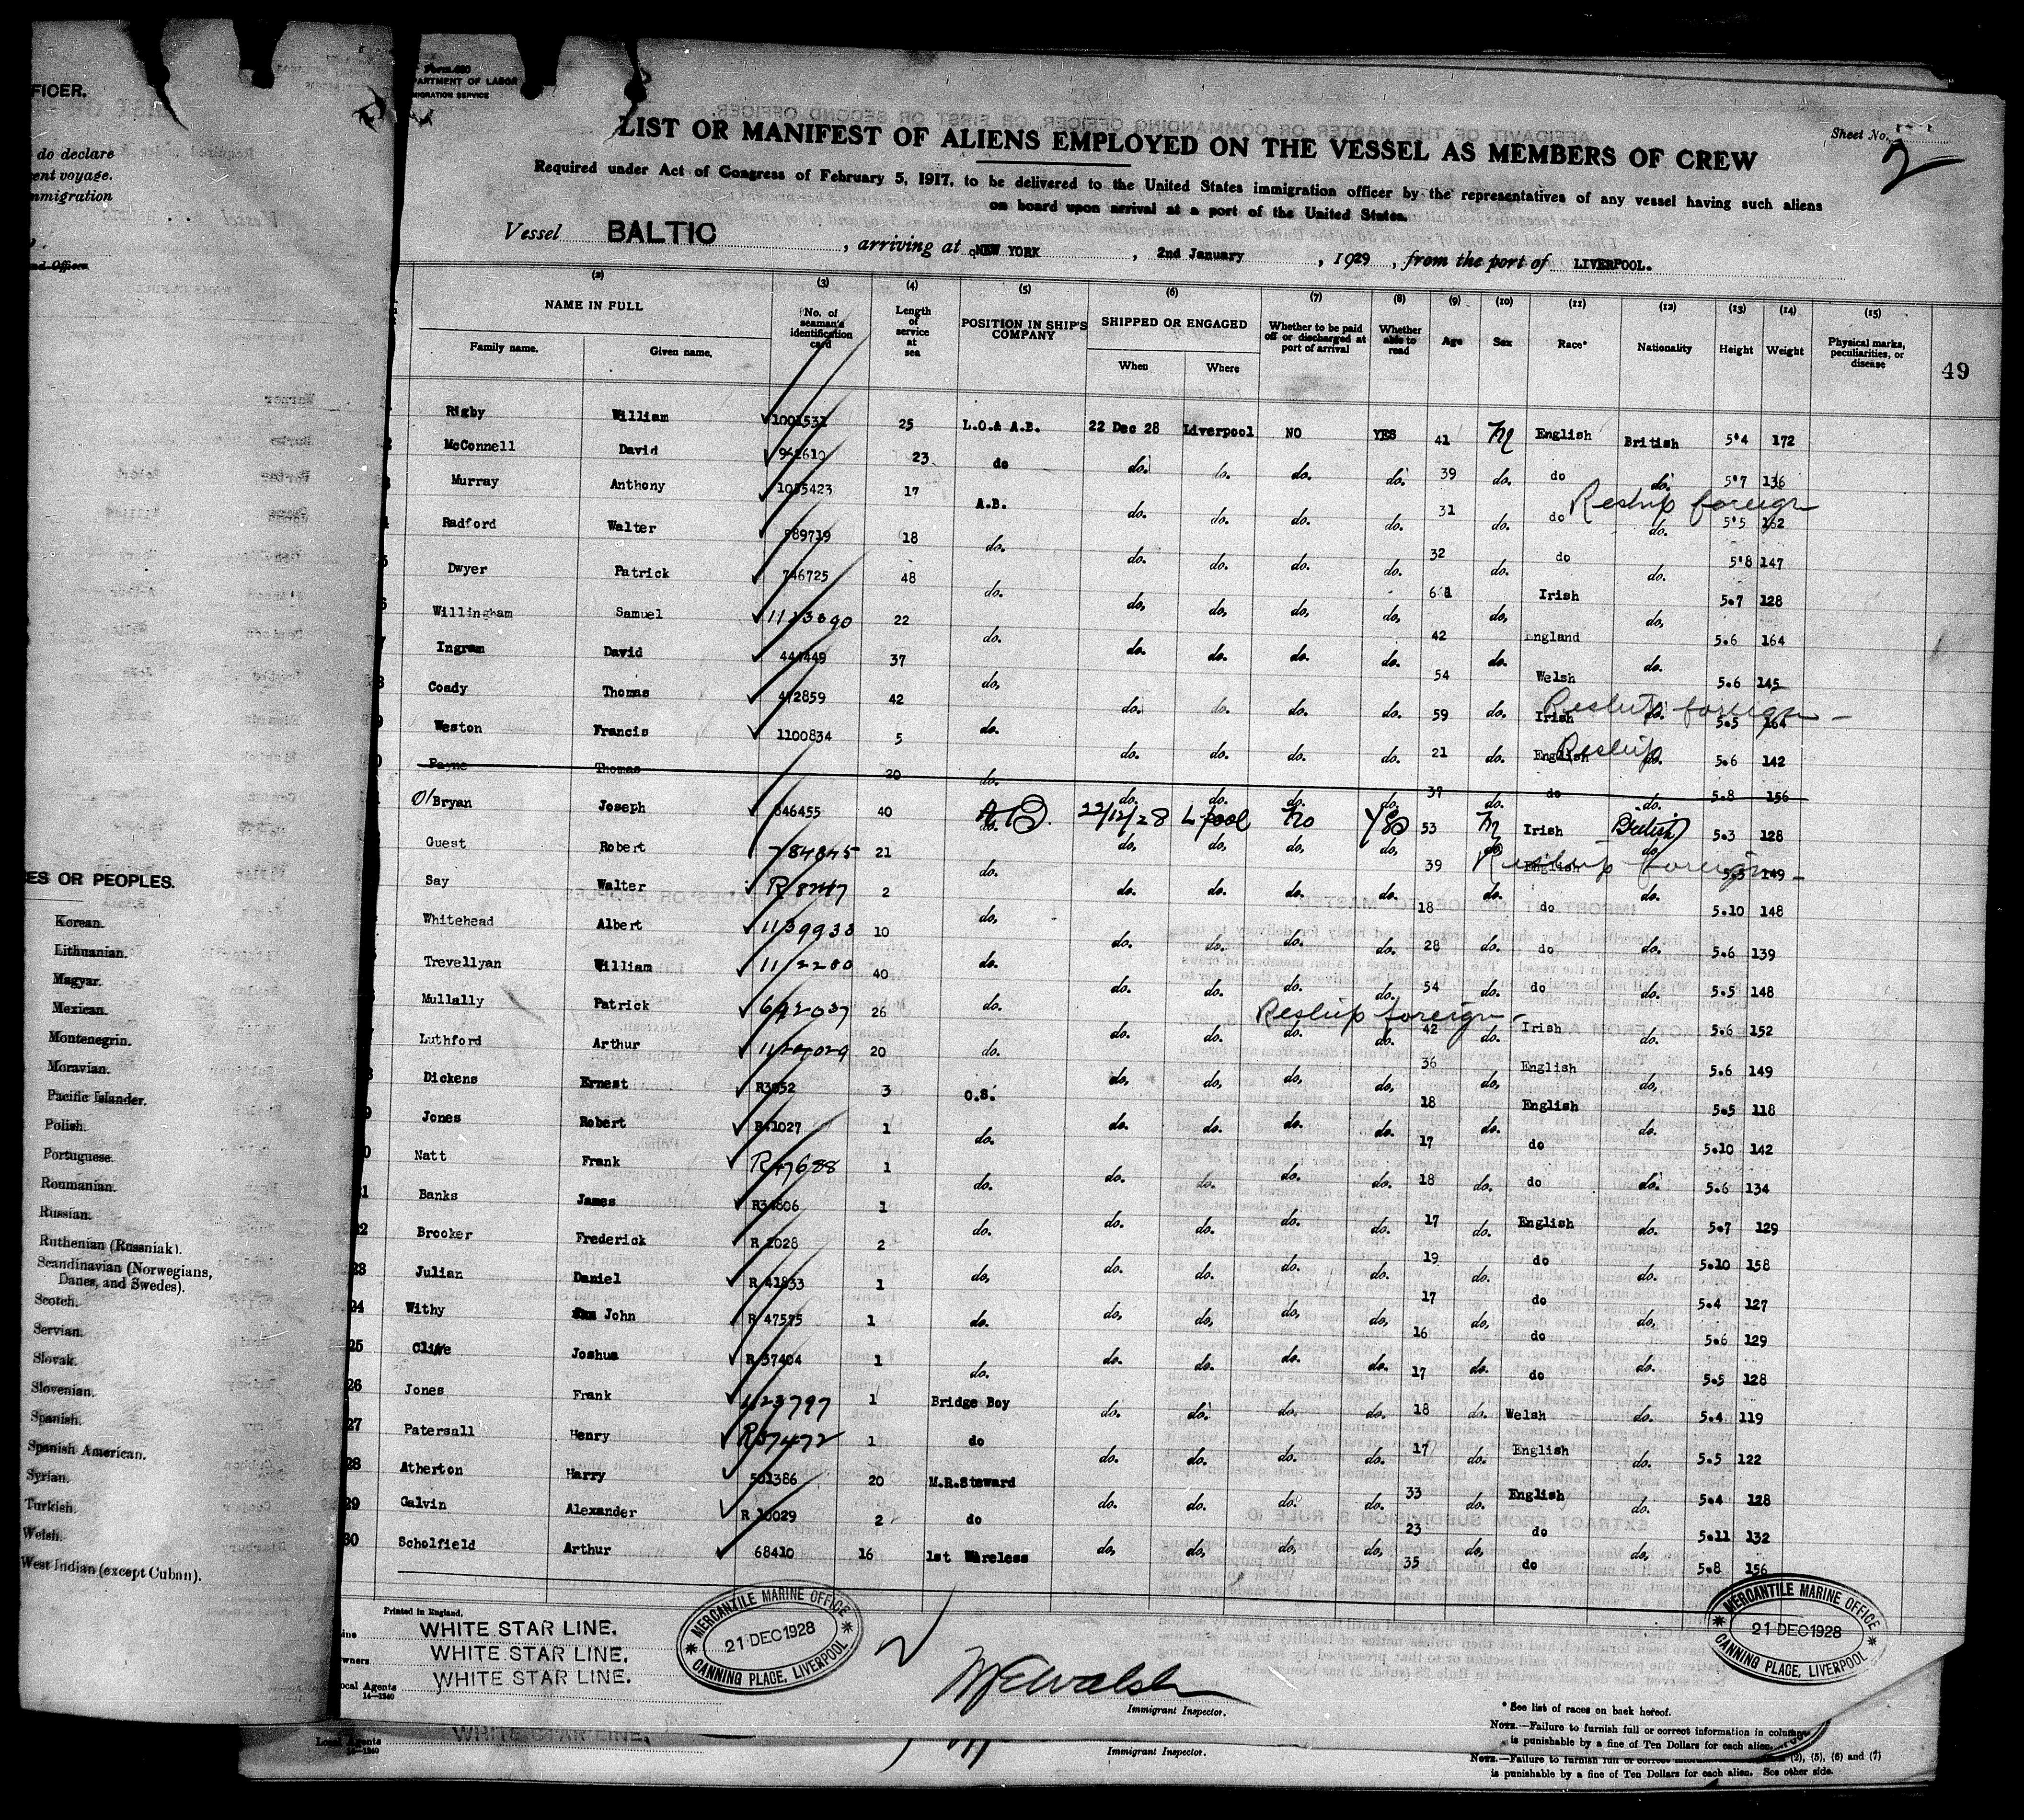 FICER.
do declare
ent voyage.
mmigration
nd Officer.
ES OR PEOPLES.
Korean.
Lithuanian.
Magyar.
Mexican.
Montenegrin.
Moravian.
Pacific Islander.
Polish.
Portuguese.
Roumanian.
Russian.
Ruthenian (Russniak).
Scandinavian (Norwegians,
Danes, and Swedes).
Scotch.
Servian.
Slovak.
Slovenian.
Spanish.
Spanish American.
Syrian.
Turkish.
Welsh.
West Indian (except Cuban).
ARTMENT OF LABOR
MIGRATION SERVICE
Sheet No. 2
LIST OR MANIFEST OF ALIENS EMPLOYED ON THE VESSEL AS MEMBERS OF CREW
Required under Act of Congress of February 5, 1917, to be delivered to the United States immigration officer by the representatives of any vessel having such aliens
on board upon arrival at a port of the United States.
Vessel BALTIC, arriving at NEW YORK, 2nd January, 1929, from the port of LIVERPOOL.
(2) (3) (4) (5) (6) (7) (8) (9) (10) (11) (12) (13) (14) (15)
NAME IN FULL
Family name. Given name.
No. of seaman's identification card
Length of service at sea
POSITION IN SHIP'S COMPANY
SHIPPED OR ENGAGED
When Where
Whether to be paid off or discharged at port of arrival
Whether able to read
Age Sex Race* Nationality Height Weight
Physical marks, peculiarities, or disease
49
Rigby William 25 L.O.& A.B. 22 Dec 28 Liverpool NO YES 41 M English British 5.4 172
McConnell David 23 do do. do. do. do. 39 do. do do. 5.7 136
Murray Anthony 1055423 17 A.B. do. do. do. do. 31 do. do do. 5.5 162
Reship foreign
Radford Walter 18 do. do. do. do. do. 32 do. do do. 5.8 147
5 Dwyer Patrick 746725 48 do. do. do. do. do. Irish do. 5.7 128
Willingham Samuel 22 do. do. do. do. do. 42 do. England do. 5.6 164
Ingram David 37 do. do. do. do. do. 54 do. Welsh do. 5.6 145
Coady Thomas 472859 42 do. do. do. do. do. 59 do. Irish do. 5.5 164
Reship foreign
9 Weston Francis 1100834 5 do. do. do. do. do. 21 do. English do. 5.6 142
Reship
Payne Thomas 20 do. do. do. do. do. 37 do. do do. 5.8 156
O'Bryan Joseph 646455 40 A B. 22/12/28 L pool No Yes 53 M Irish British 5.3 128
Guest Robert 21 do. do. do. do. do. 39 do English do 5.5 149
Reship foreign
Say Walter 2 do. do. do. do. do. 18 do. do do. 5.10 148
Whitehead Albert 1139933 10 do. do. do. do. do. 28 do. do do. 5.6 139
Trevellyan William 40 do. do. do. do. do. 54 do. do do. 5.5 148
Mullally Patrick 692037 26 do. do. do. do. do. 42 do. Irish do. 5.6 152
Reship foreign
Luthford Arthur 20 do. do. do. do. do. 36 do. English do. 5.6 149
Dickens Ernest R3052 3 O.S. do. do. do. do. 18 do. English do. 5.5 118
Jones Robert 1 do. do. do. do. do. 17 do. do do. 5.10 142
Natt Frank R47688 1 do. do. do. do. do. 18 do. do do. 5.6 134
Banks James R34806 1 do. do. do. do. do. 17 do. English do. 5.7 129
22 Brooker Frederick 2 do. do. do. do. do. 19 do. do do. 5.10 158
23 Julian Daniel R 41833 1 do. do. do. do. do. 17 do. do do. 5.4 127
24 Withy John R 47575 1 do. do. do. do. do. 16 do. do do. 5.6 129
25 Joshua R 37404 1 do. do. do. do. do. 17 do. do do. 5.5 128
26 Jones Frank 1 Bridge Boy do. do. do. do. 18 do. Welsh do. 5.4 119
27 Patersall Henry R37472 1 do do. do. do. do. 17 do. English do. 5.5 122
28 Atherton Harry 501386 20 M.R.Steward do. do. do. do. 33 do. English do. 5.4 128
29 Galvin Alexander R 10029 2 do do. do. do. do. 23 do. do do. 5.11 132
30 Scholfield Arthur 68410 16 1st Wireless do. do. do. do. 35 do. do do. 5.8 156
Printed in England.
WHITE STAR LINE.
owners WHITE STAR LINE.
Local Agents WHITE STAR LINE.
14—1240
MERCANTILE MARINE OFFICE
21 DEC 1928
CANNING PLACE, LIVERPOOL
Immigrant Inspector.
MERCANTILE MARINE OFFICE
21 DEC 1928
CANNING PLACE, LIVERPOOL
* See list of races on back hereof.
NOTE.—Failure to furnish full or correct information in columns
is punishable by a fine of Ten Dollars for each alien.
WHITE STAR LINE.
Local Agents
14—1240
Immigrant Inspector.
NOTE.—Failure to furnish full or correct (2), (5), (6) and (7)
is punishable by a fine of Ten Dollars for each alien. See other side.